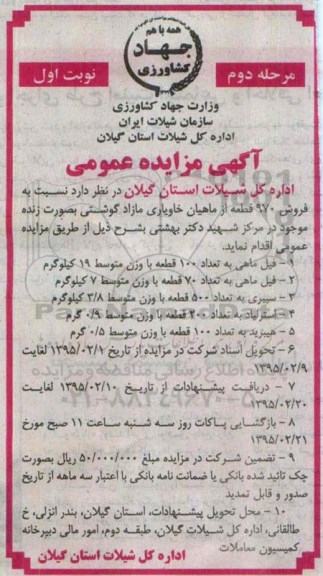 همه با هم
جهاد
کشاورزی
مرحله دوم
نوبت اول
وزارت جهاد کشاورزی
سازمان شیلات ایران
اداره کل شیلات استان گیلان
آگهی مزایده عمومی
اداره کل شیلات استان گیلان در نظر دارد نسبت به
فروش ۹۷۰ قطعه از ماهیان خاویاری مازاد گوشتی بصورت زنده
موجود در مرکز شهید دکتر بهشتی بشرح ذیل از طریق مزایده
عمومی اقدام نماید.
۱ - فیل ماهی به تعداد ۱۰۰ قطعه با وزن متوسط ۱۹ کیلوگرم
۲ - فیل ماهی به تعداد ۷۰ قطعه با وزن متوسط ۷ کیلوگرم
۳ - سیبری به تعداد ۵۰۰ قطعه با وزن متوسط ۳/۸ کیلوگرم
۴ - استرلیاد به تعداد ۲۰۰ قطعه با وزن متوسط ۰/۹ گرم
۵ - هیبرید به تعداد ۱۰۰ قطعه با وزن متوسط ۰/۵ گرم
۶ - تحویل اسناد شرکت در مزایده از تاریخ ۱۳۹۵/۰۲/۱ لغایت
۱۳۹۵/۰۲/۹
۷ - دریافت پیشنهادات از تاریخ ۱۳۹۵/۰۲/۱۰ لغایت
۱۳۹۵/۰۲/۲۰
۸ - بازگشایی پاکات روز سه شنبه ساعت ۱۱ صبح مورخ
۱۳۹۵/۰۲/۲۱
۹ - تضمین شرکت در مزایده مبلغ ۵۰/۰۰۰/۰۰۰ ریال بصورت
چک تائید شده بانکی یا ضمانت نامه بانکی با اعتبار سه ماهه از تاریخ
صدور و قابل تمدید
۱۰ - محل تحویل پیشنهادات، استان گیلان، بندر انزلی، خ
طالقانی، اداره کل شیلات گیلان، طبقه دوم، امور مالی دبیرخانه
کمیسیون معاملات
اداره کل شیلات استان گیلان